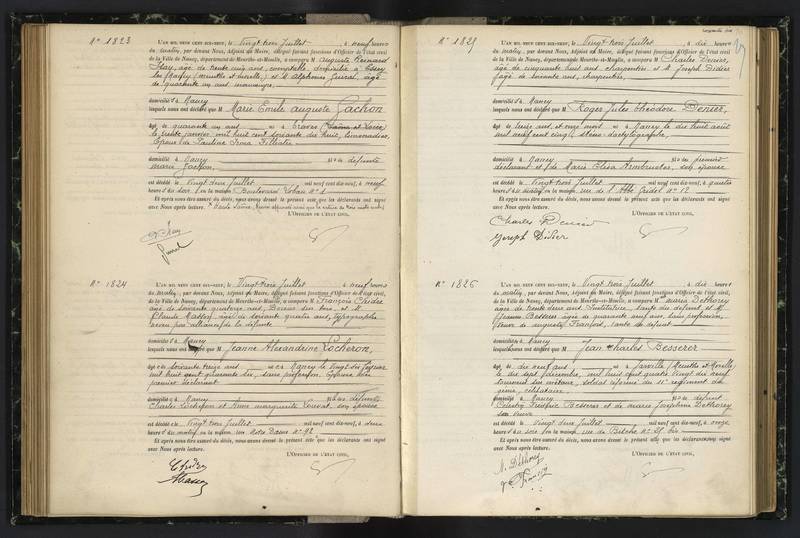 N° 1823
L'AN MIL NEUF CENT DIX-NEUF, le Vingt trois Juillet, à neuf heures
du matin, par devant Nous, Adjoint au Maire, délégué faisant fonctions d'Officier de l'état civil
de la Ville de Nancy, département de Meurthe-et-Moselle, a comparu M Auguste Bernard
âgé de trente cinq ans, domicilié à Essey
les Nancy (Meurthe et Moselle), et M Alphonse âgé
de quarante un ans
domicilié à Nancy
lesquels nous ont déclaré que M Marie Emile Auguste Gachon
âgé de quarante un ans né à
le trente janvier mil huit cent soixante dix huit,
Epoux de Pauline Irma
domicilié à Nancy fils de défunte
Marie Gachon,
est décédé le Vingt deux Juillet mil neuf cent dix-neuf, à neuf
heures du soir, en la maison Boulevard Lobau n° 1
Et après nous être assuré du décès, nous avons dressé le présent acte que les déclarants ont signé
avec Nous après lecture.
L'OFFICIER DE L'ÉTAT CIVIL,
N° 1824
L'AN MIL NEUF CENT DIX-NEUF, le Vingt trois Juillet, à neuf heures
du matin, par devant Nous, Adjoint au Maire, délégué faisant fonctions d'Officier de l'état civil,
de la Ville de Nancy, département de Meurthe-et-Moselle, a comparu M François
âgé de soixante quatorze ans, et M
Claude âgé de soixante quatre ans, typographe
de la défunte
domiciliés à Nancy
lesquels nous ont déclaré que M Jeanne Alexandrine Locheron,
âgée de soixante treize ans née à Nancy le vingt six février
mil huit cent quarante six, sans profession, Epouse du
premier déclarant
domiciliée à Nancy fille de défunts
Charles Locheron et Anne Marguerite son épouse
est décédée le Vingt trois Juillet mil neuf cent dix-neuf, à deux
heures du matin, en la maison rue Notre Dame n° 92
Et après nous être assuré du décès, nous avons dressé le présent acte que les déclarants ont signé
avec Nous après lecture.
L'OFFICIER DE L'ÉTAT CIVIL,
N° 1825
L'AN MIL NEUF CENT DIX-NEUF, le Vingt trois Juillet, à dix heures
du matin, par devant Nous, Adjoint au Maire, délégué faisant fonctions d'Officier de l'état civil
de la Ville de Nancy, département de Meurthe-et-Moselle, a comparu M Charles Denier,
âgé de cinquante huit ans, charpentier et M Joseph Didier
âgé de soixante ans, charpentier,
domiciliés à Nancy
lesquels nous ont déclaré que M Roger Jules Théodore Denier,
âgé de treize ans et onze mois né à Nancy le dix huit août
mil neuf cent cinq, sténo dactylographe,
domicilié à Nancy fils du premier
déclarant et de Marie Elisa son épouse
est décédé le Vingt trois Juillet mil neuf cent dix-neuf, à quatre
heures du matin, en la maison rue de l'Abbé Gridel n° 12
Et après nous être assuré du décès, nous avons dressé le présent acte que les déclarants ont signé
avec Nous après lecture.
L'OFFICIER DE L'ÉTAT CIVIL,
Charles Denier
Joseph Didier
N° 1826
L'AN MIL NEUF CENT DIX-NEUF, le Vingt trois Juillet, à dix heures
du matin, par devant Nous, Adjoint au Maire, délégué faisant fonctions d'Officier de l'état civil,
de la Ville de Nancy, département de Meurthe-et-Moselle, a comparu M Maria Dethorey
âgée de trente deux ans, Institutrice, tante du défunt, et M
Jeanne Besserer âgée de quarante neuf ans, sans profession,
Veuve de Auguste François, tante du défunt
domiciliées à Nancy
lesquels nous ont déclaré que M Jean Charles Besserer
âgé de dix neuf ans né à Jarville (Meurthe et Moselle)
le dix sept décembre mil huit cent quatre vingt dix neuf
tourneur sur métaux, soldat réformé du 11e régiment du
génie, célibataire,
domicilié à Nancy fils de défunt
Frédéric Besserer et de Marie Joséphine Dethorey
sa veuve
est décédé le Vingt deux Juillet mil neuf cent dix-neuf, à onze
heures du soir, en la maison rue de Bitche n° 25 bis
Et après nous être assuré du décès, nous avons dressé le présent acte que les déclarants ont signé
avec Nous après lecture.
L'OFFICIER DE L'ÉTAT CIVIL,
M. Dethorey